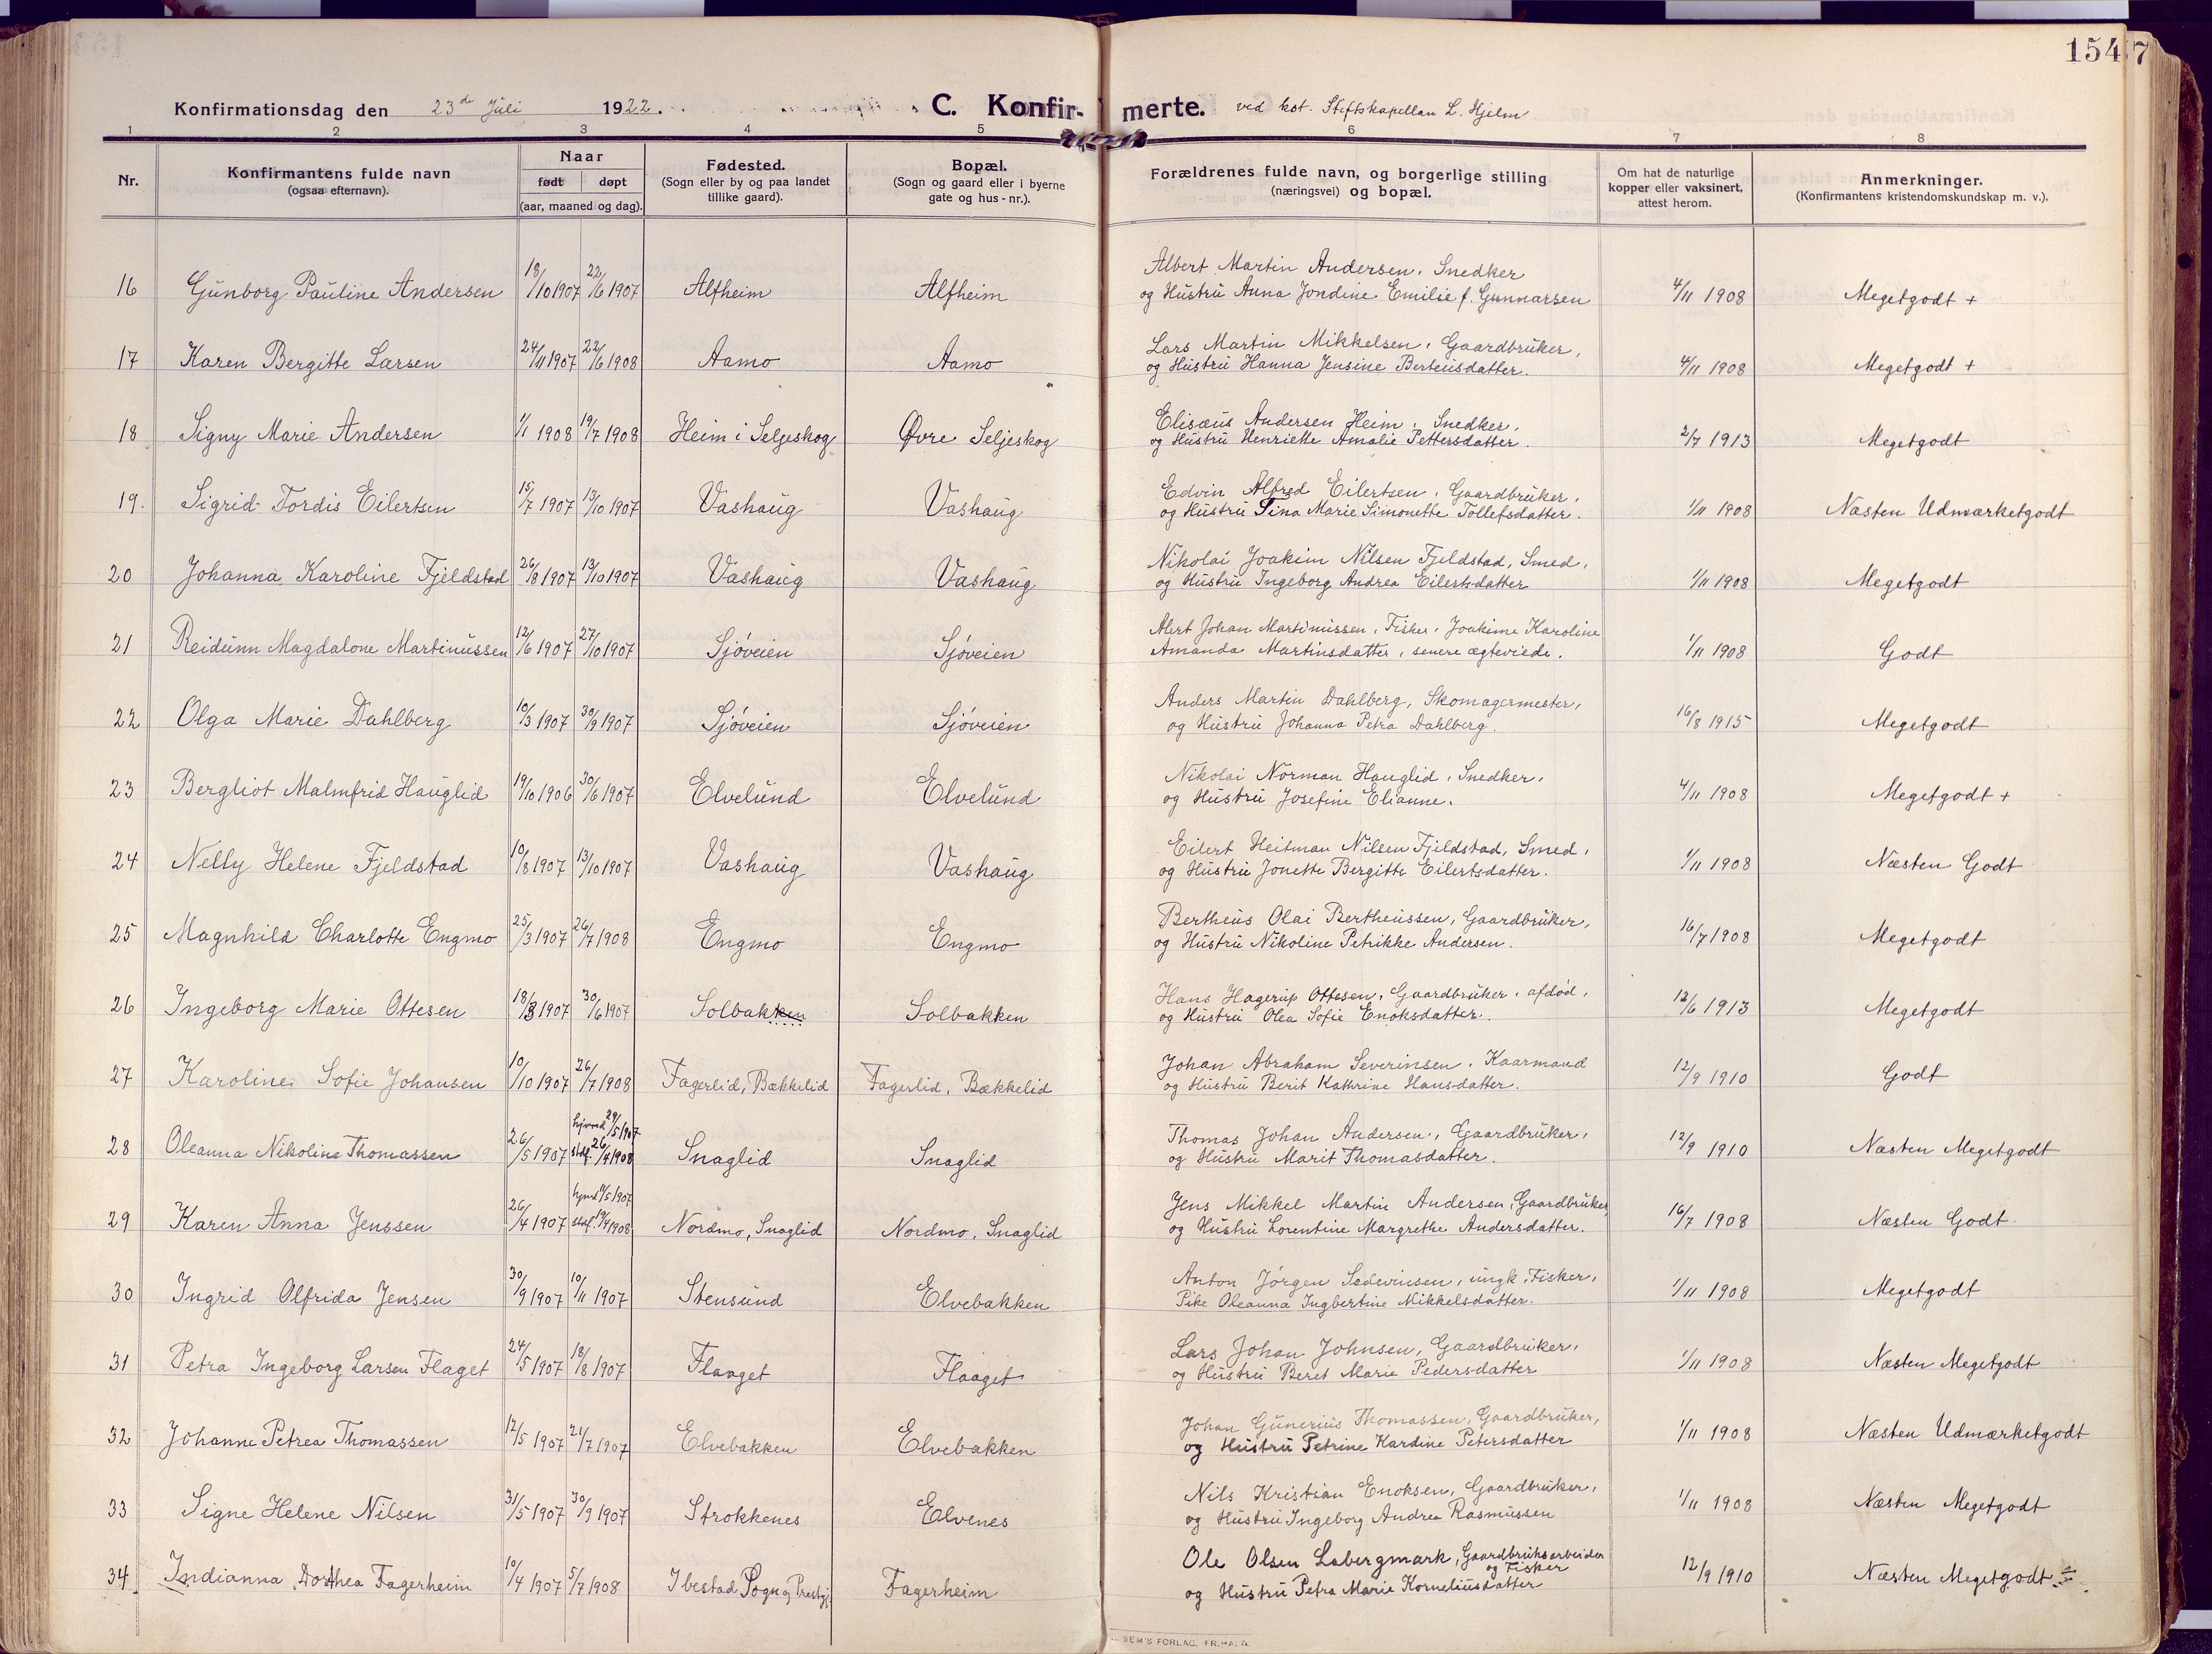 154 7
Konfirmationsdag den 23de Juli 1922. C. Konfirmerte. ved kst. Stiftskapellan L. Hjelm
1 2 3 4 5 6 7 8
Nr. | Konfirmantens fulde navn (ogsaa efternavn). | Naar født døpt (aar, maaned og dag). | Fødested. (Sogn eller by og paa landet tillike gaard). | Bopæl. (Sogn og gaard eller i byerne gate og hus-nr.). | Forældrenes fulde navn, og borgerlige stilling (næringsvei) og bopæl. | Om hat de naturlige kopper eller vaksinert, attest herom. | Anmerkninger. (Konfirmantens kristendomskundskap m. v.).
16 Gunborg Pauline Andersen 18/10 1907 22/6 1907 Alfheim Alfheim Albert Martin Andersen, Snedker
og Hustru Anna Jondine Emilie f. Gunnarsen 4/11 1908 Megetgodt +
17 Karen Bergitte Larsen 24/11 1907 22/6 1908 Aamo Aamo Lars Martin Mikkelsen, Gaardbruker,
og Hustru Hanna Jensine Berteusdatter. 4/11 1908 Megetgodt +
18 Signy Marie Andersen 1/1 1908 19/7 1908 Heim i Seljeskog Øvre Seljeskog Elisæus Andersen Heim, Snedker,
og Hustru Henriette Amalie Pettersdatter. 2/7 1913 Megetgodt
19. Sigrid Tordis Eilertsen 15/7 1907 13/10 1907 Vashaug Vashaug Edvin Alfred Eilertsen, Gaardbruker,
og Hustru Tina Marie Simonette Tollefsdatter. 1/11 1908 Næsten Udmærketgodt
20 Johanna Karoline Fjeldstad 26/8 1907 13/10 1907 Vashaug Vashaug Nikolai Joakim Nilsen Fjeldstad, Smed,
og Hustru Ingeborg Andrea Eilertsdatter 1/11 1908 Megetgodt
21 Reidunn Magdalone Martinussen 12/6 1907 27/10 1907 Sjøveien Sjøveien Alert Johan Martinussen, Fisker, Joakime Karoline
Amanda Martinsdatter, senere ægteviede. 1/11 1908 Godt
22 Olga Marie Dahlberg 10/3 1907 30/9 1907 Sjøveien Sjøveien Anders Martin Dahlberg, Skomagermester,
og Hustru Johanna Petra Dahlberg. 16/8 1915 Megetgodt
23 Bergliot Malmfrid Hauglid 19/10 1906 30/6 1907 Elvelund Elvelund Nikolai Norman Hauglid, Snedker,
og Hustru Josefine Elianne. 4/11 1908 Megetgodt +
24 Nelly Helene Fjeldstad 10/8 1907 13/10 1907 Vashaug Vashaug Eilert Heitman Nilsen Fjeldstad, Smed,
og Hustru Jonette Bergitte Eilertsdatter. 1/11 1908 Næsten Godt
25 Magnhild Charlotte Engmo 25/3 1907 26/7 1908 Engmo Engmo Bertheus Olai Bertheussen, Gaardbruker,
og Hustru Nikoline Petrikke Andersen. 16/7 1908 Megetgodt
26 Ingeborg Marie Ottesen 18/3 1907 30/6 1907 Solbakken Solbakken Hans Hagerup Ottesen, Gaardbruker, afdød,
og Hustru Olea Sofie Enoksdatter. 12/6 1913 Megetgodt
27 Karoline Sofie Johansen 10/10 1907 26/7 1908 Fagerlid, Bækkelid Fagerlid, Bækkelid Johan Abraham Severinsen, Kaarmand
og Hustru Berit Kathrine Hansdatter. 12/9 1910 Godt
28 Oleanna Nikoline Thomassen 26/5 1907 hjmed. 29/5 1907 stdf. 26/7 1908 Snaglid Snaglid Thomas Johan Andersen, Gaardbruker,
og Hustru Marit Thomasdatter. 12/9 1910 Næsten Megetgodt
29 Karen Anna Jenssen 26/4 1907 stdf. 19/4 1908 Nordmo, Snaglid Nordmo, Snaglid Jens Mikkel Martin Andersen, Gaardbruker,
og Hustru Lorentine Margrethe Andersdatter. 16/7 1908 Næsten Godt
30 Ingrid Olfrida Jensen 30/9 1907 10/11 1907 Stensund Elvebakken Anton Jørgen Sedevinsen, ungk. Fisker,
Pike Oleanna Ingbertine Mikkelsdatter. 1/11 1908 Megetgodt
31 Petra Ingeborg Larsen Flaget 24/5 1907 18/8 1907 Flaaget Flaaget Lars Johan Johnsen, Gaardbruker,
og Hustru Beret Marie Pedersdatter 1/11 1908 Næsten Megetgodt
32 Johanne Petrea Thomassen 12/5 1907 21/7 1907 Elvebakken Elvebakken Johan Gunerius Thomassen, Gaardbruker,
og Hustru Petrine Kardine Petersdatter 1/11 1908 Næsten Udmærketgodt
33 Signe Helene Nilsen 31/5 1907 30/9 1907 Strokkenes Elvenes Nils Kristian Enoksen, Gaardbruker,
og Hustru Ingeborg Andrea Rasmussen 1/11 1908 Næsten Megetgodt
34 Indianna Dorthea Fagerheim 10/4 1907 5/7 1908 Ibestad Sogn og Prestgj. Fagerheim Ole Olsen Labergmark, Gaardbruksarbeider
og Fisker
og Hustru Petra Marie Korneliusdatter 12/9 1910 Næsten Megetgodt
SEM'S FORLAG, FR.HALD.